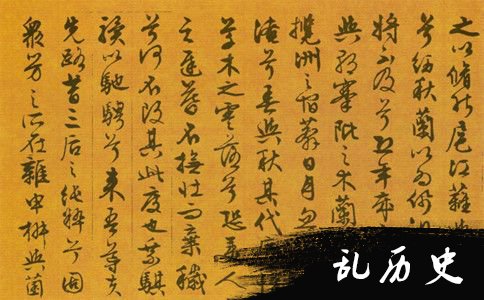 之以脩能扈江蘺
兮紉秋蘭以為佩
將不及兮恐年歲
與朝搴阰之木蘭
攬洲之宿莽日月忽
淹兮春與秋其代
草木之零落兮恐美人
之遲暮不撫壯而棄穢
兮何不改其此度也乘騏
驥以馳騁兮來吾導夫
先路昔三后之純粹兮固
衆芳之所在雜申椒與菌
乱历史